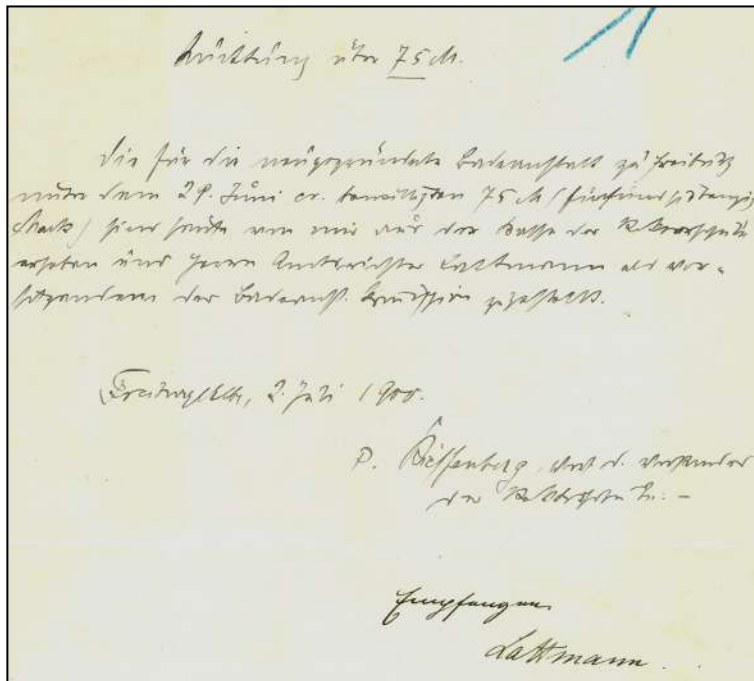 Quittung über 75 M.
Die für die neugegründete Badeanstalt zu Freiburg
unter dem 29. Juni cr. bewilligten 75 M (fünfundsiebenzig
Mark) sind heute von mir aus der Kasse der
erhoben und Herrn Amtsrichter Lattmann als Vor-
sitzendem der Badeanst. Commission zugestellt.
Freiburg/Elbe, 2. Juli 1900.
P. d.
der
Empfangen
Lattmann.